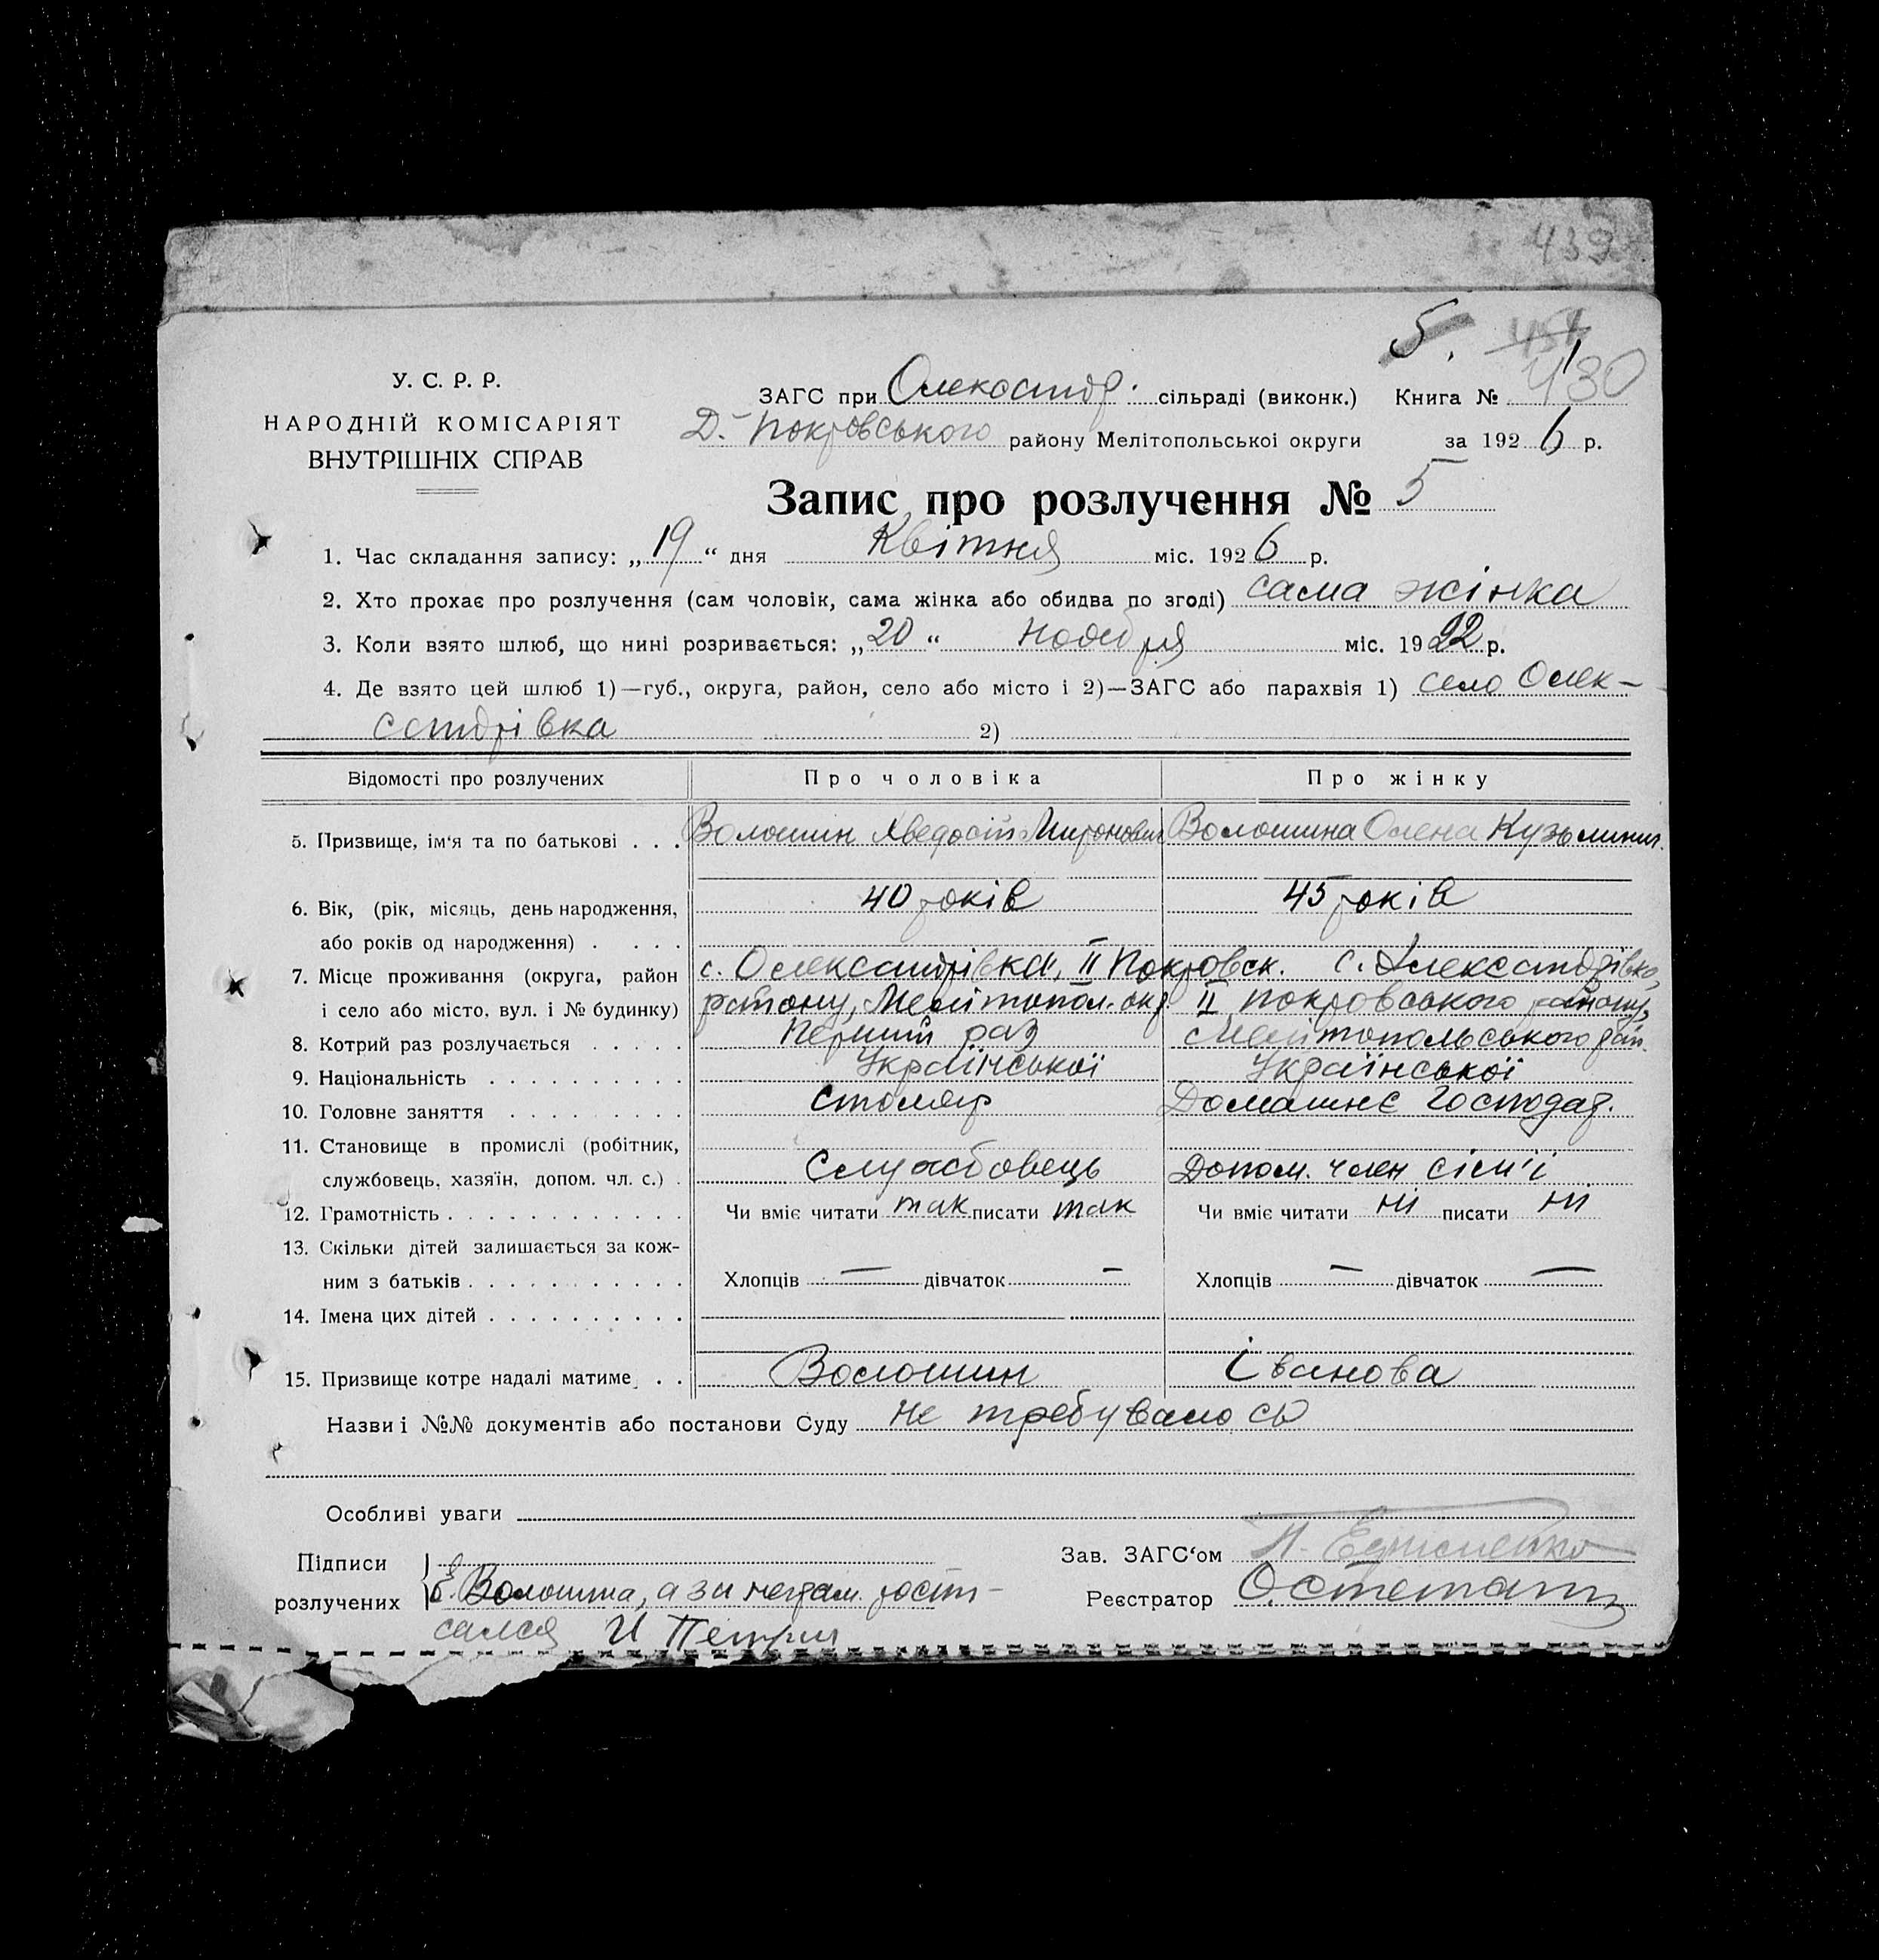 439
5. 451
У. С. Р. Р.
НАРОДНІЙ КОМІСАРІЯТ
ВНУТРІШНІХ СПРАВ
ЗАГС при Олександр. сільраді (виконк.) Книга № 430
Д.-Покровського району Мелітопольськоі округи за 1926 р.
Запис про розлучення № 5
1. Час складання запису: „19“ дня Квітня міс. 1926 р.
2. Хто прохає про розлучення (сам чоловік, сама жінка або обидва по згоді) сама жінка
3. Коли взято шлюб, що нині розривається: „20“ Ноября міс. 1922 р.
4. Де взято цей шлюб 1)—губ., округа, район, село або місто і 2)—ЗАГС або парахвія 1) село Олек-
сандрівка 2)
Відомості про розлучених Про чоловіка Про жінку
5. Призвище, ім'я та по батькові . . . Волошин Хведосій Миронович Волошина Олена Кузьминич.
6. Вік, (рік, місяць, день народження, 40 років 45 років
або років од народження) . . . .
7. Місце проживання (округа, район с. Олександрівка, ІІ Покровск. с. Александрівка,
і село або місто, вул. і № будинку) району, Мелітопол. окр. ІІ Покровського району,
8. Котрий раз розлучається . . . . . Перший раз Мелітопольського рай.
9. Національність . . . . . . . . . . Української Української
10. Головне заняття . . . . . . . . . Столяр Домашнє господар.
11. Становище в промислі (робітник,
службовець, хазяїн, допом. чл. с.) . Службовець Допом. член сім'ї
12. Грамотність . . . . . . . . . . . . Чи вміє читати так писати так Чи вміє читати ні писати ні
13. Скільки дітей залишається за кож-
ним з батьків . . . . . . . . . . . Хлопців — дівчаток — Хлопців — дівчаток —
14. Імена цих дітей . . . . . . . . . .
15. Призвище котре надалі матиме . . Волошин Іванова
Назви і №№ документів або постанови Суду не требувалось
Особливі уваги
Підписи Зав. ЗАГС'ом
розлучених Е. Волошина, а за неграм. роспи- Реєстратор
сался И